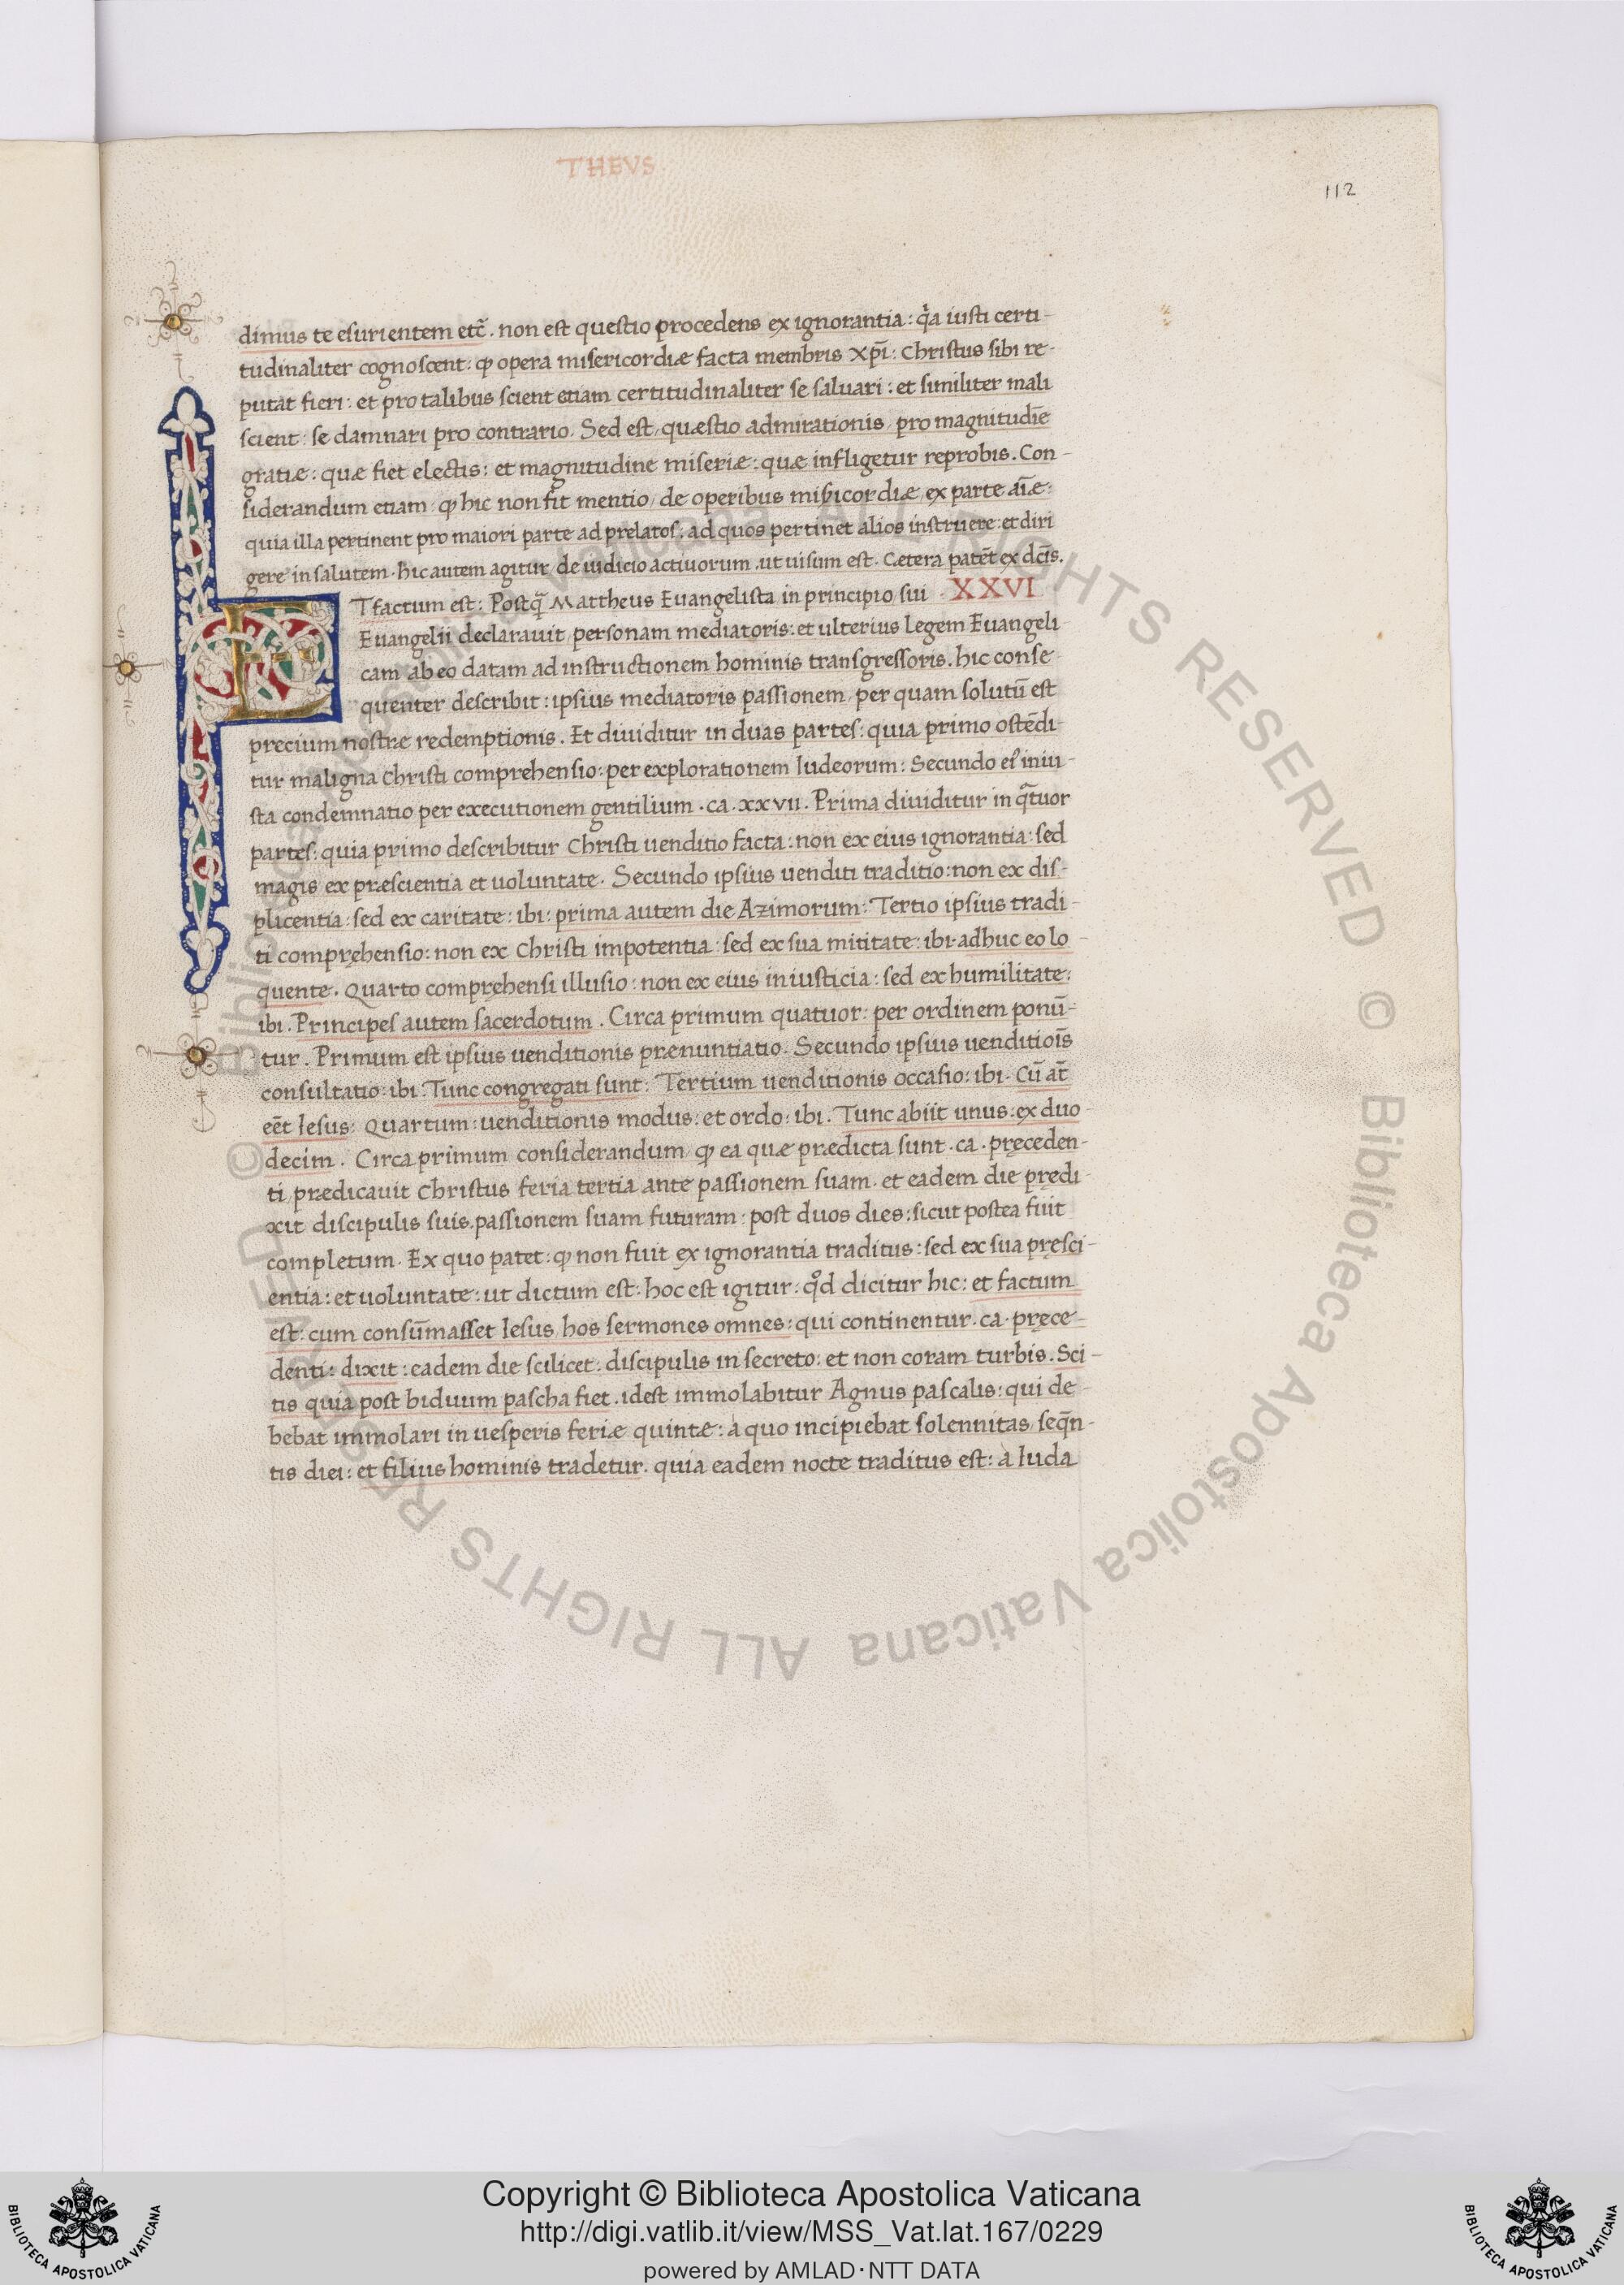 THEVS
112
dimus te esurientem etc̄. non est questio procedens ex ignorantia: q̇a iusti certi-
tudinaliter cognoscent: ꝙ opera misericordiæ facta membris Xp̄i: Christus sibi re-
putat fieri: et pro talibus scient etiam certitudinaliter se saluari: et similiter mali
scient: se damnari pro contrario. Sed est, quæstio admirationis, pro magnitudīe
gratiæ: quæ fiet electis: et magnitudine miseriæ: quæ infligetur reprobis. Con-
siderandum etiam: ꝙ hic non fit mentio, de operibus mīsicordiæ, ex parte aīæ:
quia illa pertinent pro maiori parte ad prelatos: ad quos pertinet alios instruere: et diri
gere in salutem. hic autem agitur de iudicio actiuorum, ut uisum est. Cætera patēt ex dc̄is.
ET factum est: Postq̄ Mattheus Euangelista in principio sui XXVI
Euangelii declarauit personam mediatoris: et ulterius legem Euangeli-
cam ab eo datam ad instructionem hominis transgressoris. hic conse-
quenter describit: ipsius mediatoris passionem, per quam solutū est
precium nostræ redemptionis. Et diuiditur in duas partes: quia primo ostēdi-
tur maligna Christi comprehensio: per explorationem Iudeorum: Secundo eiꝰ iniu-
sta condemnatio per executionem gentilium. ca. xxvii. Prima diuiditur in q̄tuor
partes: quia primo describitur Christi uenditio facta: non ex eius ignorantia: sed
magis ex præscientia et uoluntate. Secundo ipsius uenditi traditio: non ex dis-
plicentia: sed ex caritate: ibi: prima autem die Azimorum: Tertio ipsius tradi-
ti compręhensio: non ex Christi impotentia: sed ex sua mititate: ibi. adhuc eo lo-
quente. Quarto compręhensi illusio: non ex eius iniusticia: sed ex humilitate:
ibi. Principes autem sacerdotum. Circa primum quatuor: per ordinem ponū-
tur. Primum est ipsius uenditionis prænuntiatio. Secundo ipsius uenditiōis
consultatio: ibi. Tunc congregati sunt: Tertium uenditionis occasio: ibi. Cū āt
eēt Iesus: Quartum: uenditionis modus: et ordo: ibi. Tunc abiit unus: ex duo-
decim. Circa primum considerandum, ꝙ ea quæ prædicta sunt. ca. pręceden-
ti, prædicauit Christus feria tertia ante passionem suam. et eadem die prędi-
xit discipulis suis. passionem suam futuram: post duos dies: sicut postea fuit
completum. Ex quo patet: ꝙ non fuit ex ignorantia traditus: sed ex sua pręsci-
entia: et uoluntate: ut dictum est: hoc est igitur: qͦd dicitur hic: et factum
est: cum consūmasset Iesus, hos sermones omnes: qui continentur. ca. pręce-
denti: dixit: eadem die scilicet: discipulis in secreto: et non coram turbis. Sci-
tis quia post biduum pascha fiet. idest immolabitur Agnus pascalis: qui de-
bebat immolari in uesperis feriæ quintæ: à quo incipiebat solennitas, seq̄n-
tis diei: et filius hominis tradetur. quia eadem nocte traditus est: à Iuda
© Biblioteca Apostolica Vaticana ALL RIGHTS RESERVED © Biblioteca Apostolica Vaticana ALL RIGHTS RESERVED
BIBLIOTECA APOSTOLICA VATICANA
Copyright © Biblioteca Apostolica Vaticana
http://digi.vatlib.it/view/MSS_Vat.lat.167/0229
powered by AMLAD·NTT DATA
BIBLIOTECA APOSTOLICA VATICANA